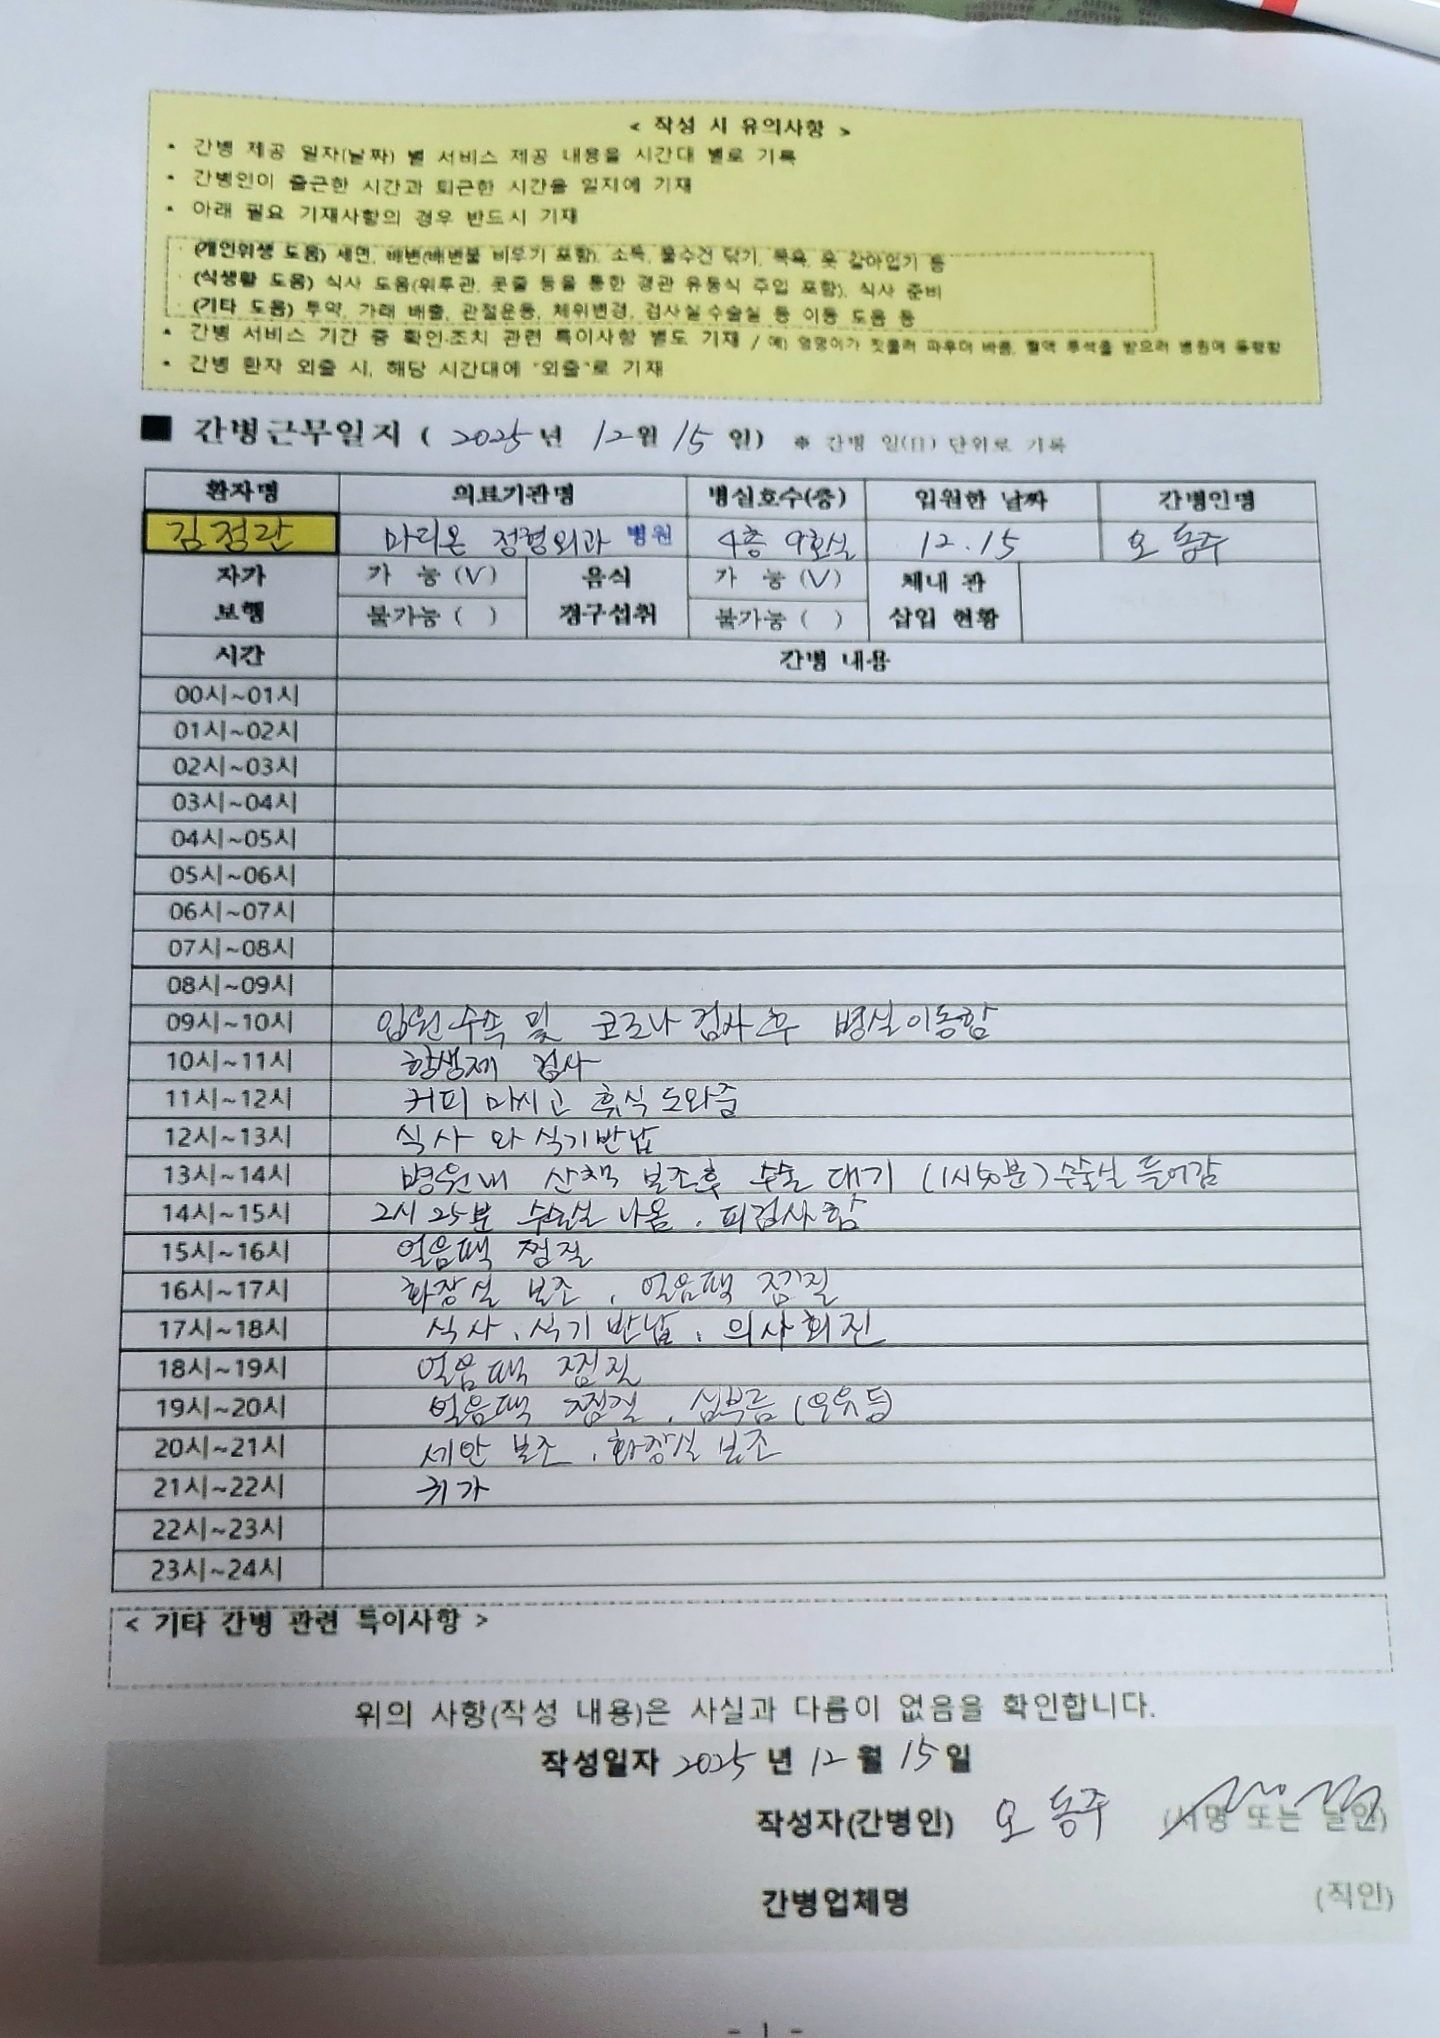 < 작성 시 유의사항 >
• 간병 제공 일자(날짜) 별 서비스 제공 내용을 시간대 별로 기록
• 간병인이 출근한 시간과 퇴근한 시간을 일지에 기재
• 아래 필요 기재사항의 경우 반드시 기재
· (개인위생 도움) 세면, 배변(배변물 비우기 포함), 소독, 물수건 닦기, 목욕, 옷 갈아입기 등
· (식생활 도움) 식사 도움(위루관, 콧줄 등을 통한 경관 유동식 주입 포함), 식사 준비
· (기타 도움) 투약, 가래 배출, 관절운동, 체위변경, 검사실수술실 등 이동 도움 등
• 간병 서비스 기간 중 확인·조치 관련 특이사항 별도 기재 / 예) 엉덩이가 짓물러 파우더 바름, 혈액 투석을 받으러 병원에 동행함
• 간병 환자 외출 시, 해당 시간대에 "외출"로 기재
■ 간병근무일지 ( 2025년 12월 15일) ※ 간병 일(日) 단위로 기록
환자명 의료기관명 병실호수(층) 입원한 날짜 간병인명
김정란 마리온 정형외과 병원 4층 9호실 12.15 오동주
자가 보행 가 능 (V) 불가능 ( ) 음식 경구섭취 가 능 (V) 불가능 ( ) 체내 관 삽입 현황
시간 간병 내용
00시~01시
01시~02시
02시~03시
03시~04시
04시~05시
05시~06시
06시~07시
07시~08시
08시~09시
09시~10시 입원수속 및 코로나 검사후 병실이동함
10시~11시 항생제 검사
11시~12시 커피 마시고 휴식 도와줌
12시~13시 식사 와 식기반납
13시~14시 병원내 산책 보조후 수술 대기 (1시50분) 수술실 들어감
14시~15시 2시 25분 수술실 나옴, 피검사함
15시~16시 얼음팩 찜질
16시~17시 화장실 보조, 얼음팩 찜질
17시~18시 식사, 식기반납, 의사회진
18시~19시 얼음팩 찜질
19시~20시 얼음팩 찜질, 심부름 (우유등)
20시~21시 세안 보조, 화장실 보조
21시~22시 귀가
22시~23시
23시~24시
< 기타 간병 관련 특이사항 >
위의 사항(작성 내용)은 사실과 다름이 없음을 확인합니다.
작성일자 2025년 12월 15일
작성자(간병인) 오동주 (서명 또는 날인)
간병업체명 (직인)
- 1 -